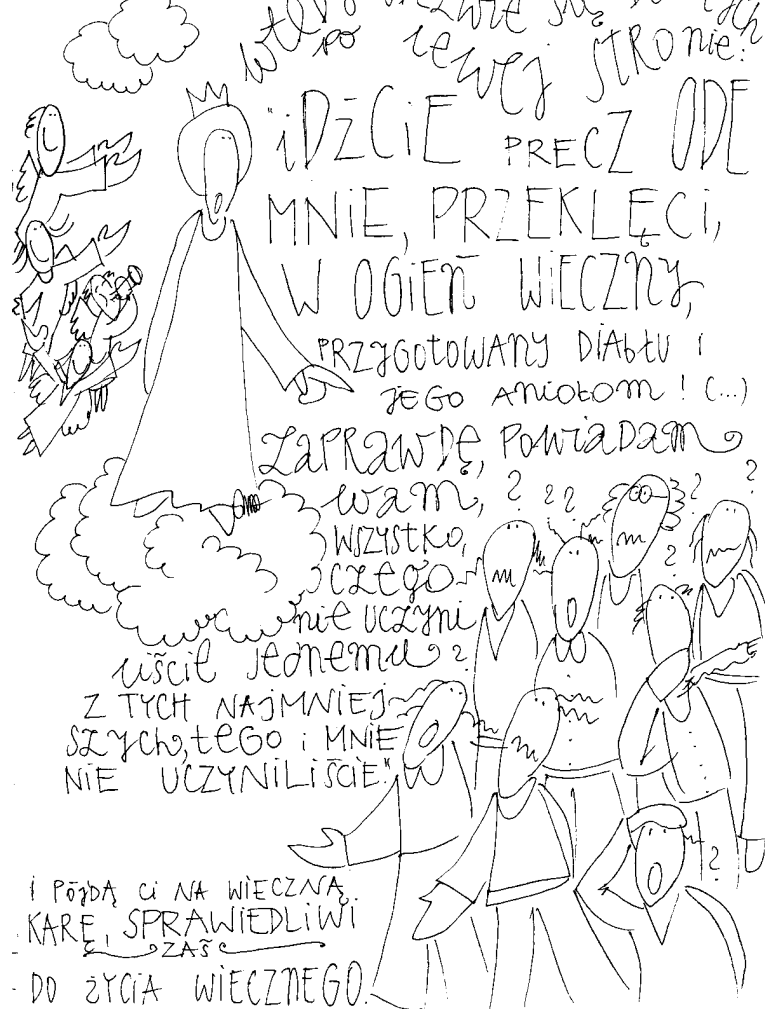 wtedy odezwie się do tych
po lewej stronie:
"iDŹCiE PRECZ ODE
MNiE, PRZEKLĘCi,
W OGiEŃ WiECZNY,
PRZYGOTOWANY DiAbŁU i
JEGO ANiOŁOM! (...)
ZAPRAWDĘ, POWiADAM
wam,
? ? ? ? ?
WSZYSTKO,
CZEGO
?
niE UCZYNi
liście jednemu
?
Z TYCH NAJMNIEJ
SZYCh, tEGO i MNiE
NiE UCZYNiLiŚCiE."
?
i PÓjDĄ Ci NA WiECZNĄ
KARĘ, SPRAWiEDLiWi
ZAŚ
DO ŻYCiA WiECZNEGO.